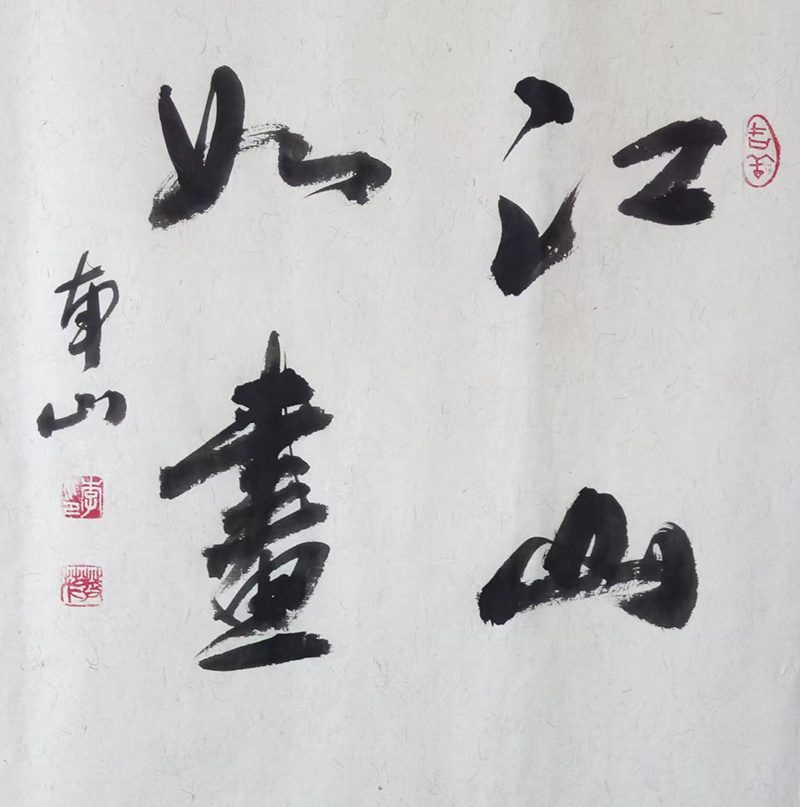 江山
如畫
東山